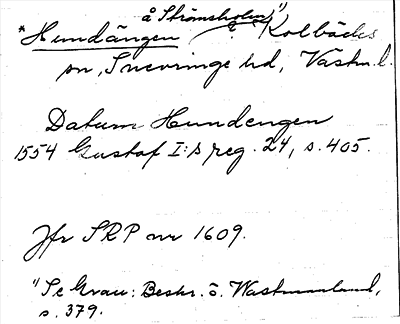 å Strömsholm 1)
*Hundängen i Kolbäcks
sn, Snevringe hd, Västm.l.
Datum Hundengen
1554 Gustaf I:s reg. 24, s. 405.
Jfr SRP nr 1609.
1) Se Grau: Beskr. ö. Wastmanland,
s. 379.